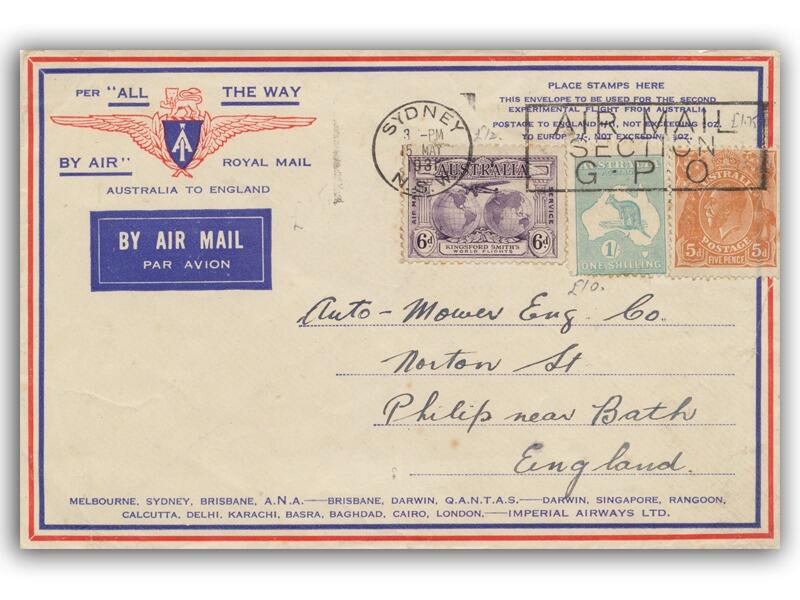 PER "ALL THE WAY
BY AIR" ROYAL MAIL
AUSTRALIA TO ENGLAND
BY AIR MAIL
PAR AVION
PLACE STAMPS HERE
THIS ENVELOPE TO BE USED FOR THE SECOND
EXPERIMENTAL FLIGHT FROM AUSTRALIA
POSTAGE TO ENGLAND NOT EXCEEDING ½OZ.
TO EUROPE NOT EXCEEDING ½OZ.
SYDNEY
3 -PM
15 MAY
1931
N.S.W.
AIR MAIL
SECTION
G·P·O
AUSTRALIA
AIR MAIL SERVICE
6d 6d
KINGSFORD SMITH'S
WORLD FLIGHTS
AUSTRALIA
1/-
ONE SHILLING
AUSTRALIA
POSTAGE
5d 5d
FIVE PENCE
£10.
Auto-Mower Eng. Co.
Norton St
Philip near Bath
England.
MELBOURNE, SYDNEY, BRISBANE, A.N.A.—BRISBANE, DARWIN, Q.A.N.T.A.S.—DARWIN, SINGAPORE, RANGOON,
CALCUTTA, DELHI, KARACHI, BASRA, BAGHDAD, CAIRO, LONDON,—IMPERIAL AIRWAYS LTD.